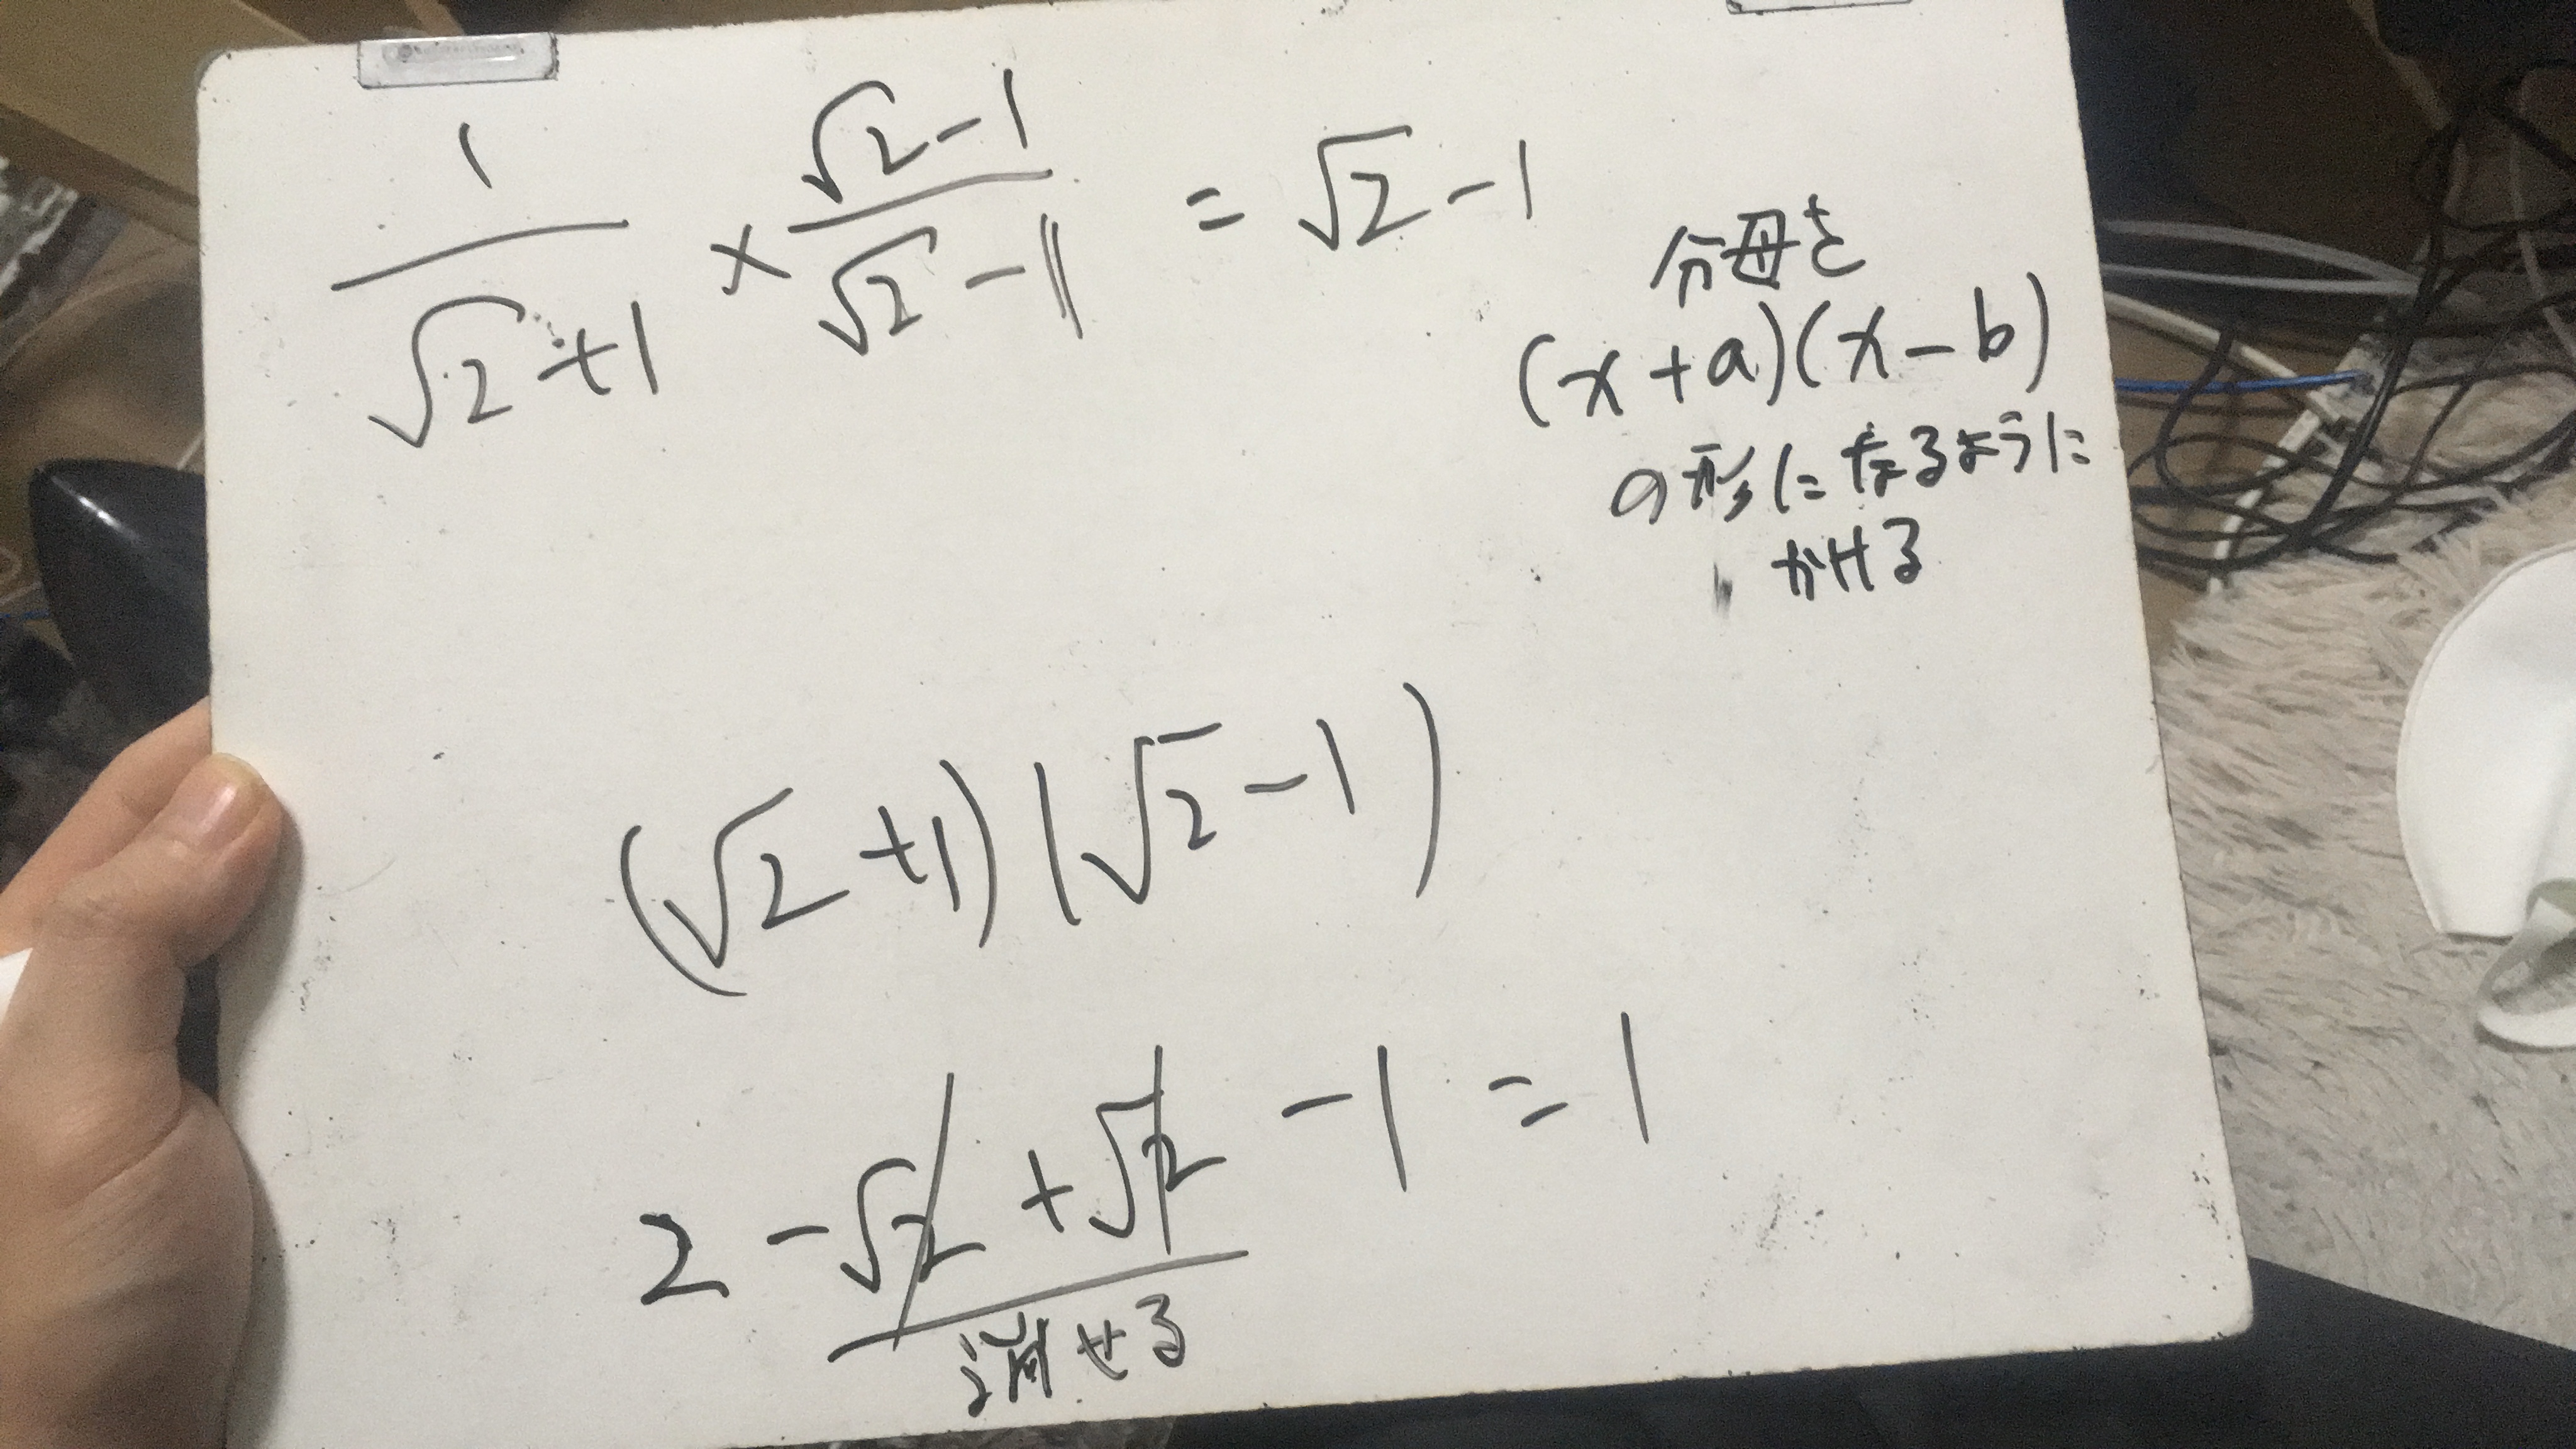 1/(√2+1) × (√2-1)/(√2-1) = √2-1
分母を
(x+a)(x-b)
の形になるように
かける
(√2+1)(√2-1)
2-√2+√2-1=1
消せる